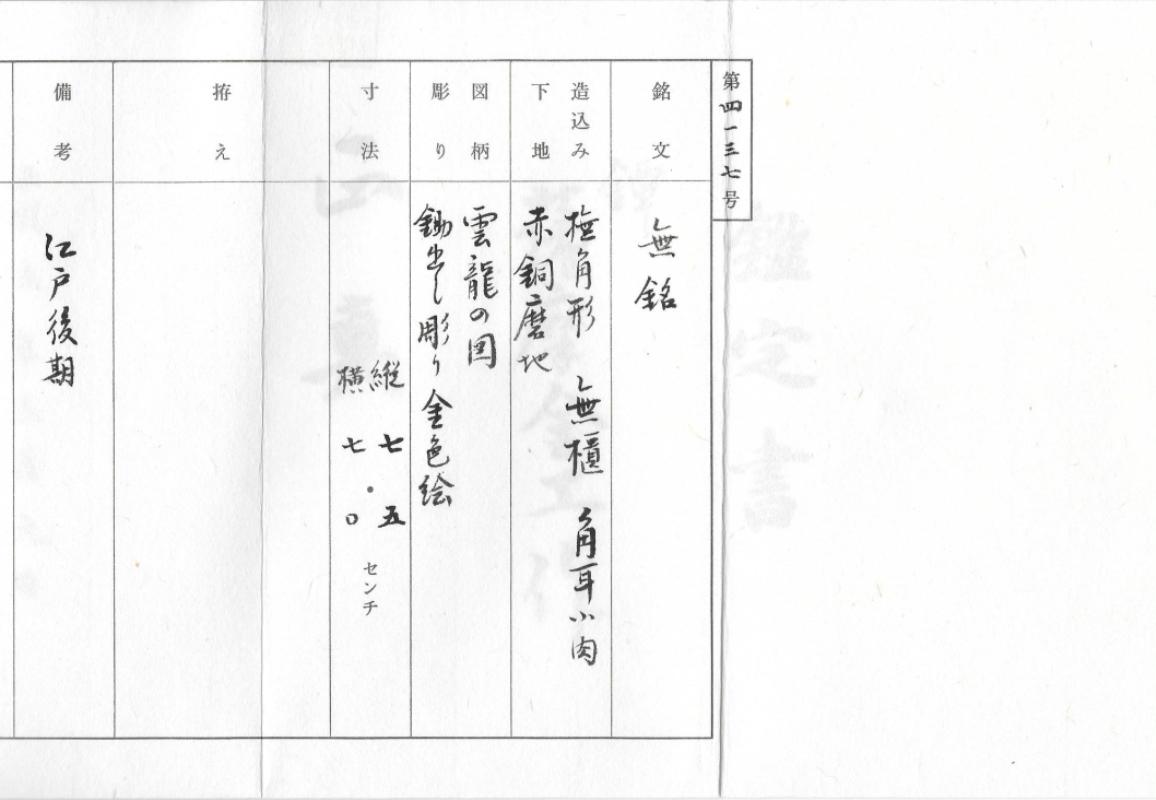 第四一三七号
銘文
無銘
造込み
下地
撫角形 無櫃 角耳小肉
赤銅磨地
図柄
彫り
雲龍の図
鋤出し彫り 金色絵
寸法
縦 七・五
横 七・〇
センチ
拵え
備考
江戸後期
鑑定書